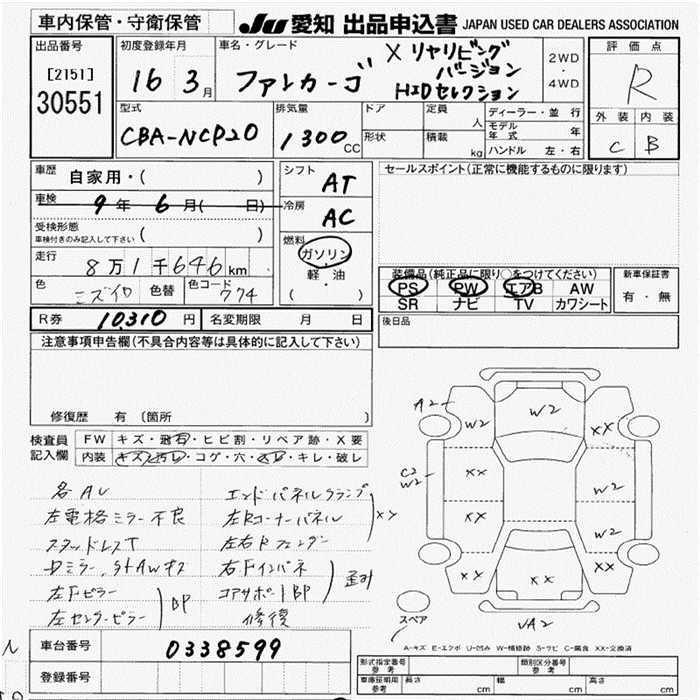 車内保管・守衛保管
JU 愛知 出品申込書 JAPAN USED CAR DEALERS ASSOCIATION
出品番号
[2151]
30551
初度登録年月
16 3月
車名・グレード
ファンカーゴ X リヤリビング
バージョン
HIDセレクション
2WD
・
4WD
評価点
R
外装 内装
C B
型式
CBA-NCP20
排気量
1300 CC
ドア
形状
定員 人
積載 kg
ディーラー・並行
モデル年式 年
ハンドル 左・右
車歴 自家用・( )
車検 9年 6月( 日)
受検形態 ( )
車検付きのみ記入して下さい
走行 8万1千646km
色 ミズイロ 色替 色コード 774
シフト AT
冷房 AC
燃料
ガソリン
・
軽・油
( )
セールスポイント(正常に機能するものに限ります)
装備品(純正品に限り○をつけてください)
PS PW エアB AW
SR ナビ TV カワシート
新車保証書
有・無
後日品
R券 10,310円 名変期限 月 日
注意事項申告欄(不具合内容等は具体的に記入して下さい)
修復歴 有(箇所 )
検査員
記入欄
FW キズ・飛石・ヒビ割・リペア跡・X要
内装 キズ・汚レ・コゲ・穴・スレ・キレ・破レ
各AU
左電格ミラー不良
スタッドレスT
Dミラー,StAwキズ
左Fピラー
左センターピラー
BP
エンドパネルクランプ
左Rコーナーパネル
左右Rフェンダー
XX
右Fインパネ
コアサポートBP
修復
歪み
A2
W2
W2
XX
C2
W2
XX
XX
W2
W2
XX
XX
XX
VA2
スペア
A-キズ E-エクボ U-凹み W-補修跡 S-サビ C-腐食 XX-交換済
車台番号 0338599
登録番号
型式指定番号 参考
類別区分番号 参考
車庫証明用 参考 長さ cm 幅 cm 高さ cm